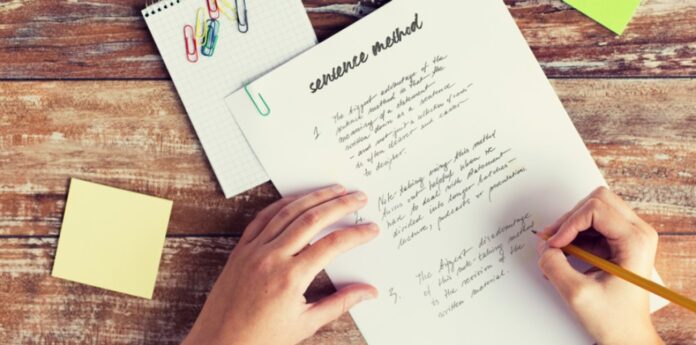 sentence method
1 The biggest advantage of the
outline method is that the
meaning of a statement
written down as a sentence
- and not just a selection of words
- is often clearer and easier
to decipher.
2. Note-taking using this method
turns out helpful when we
have to deal with statement
divided into longer batches -
lecture, podcasts or presentations.
3. The biggest disadvantage
of this note-taking method
is the revision of the
written material.